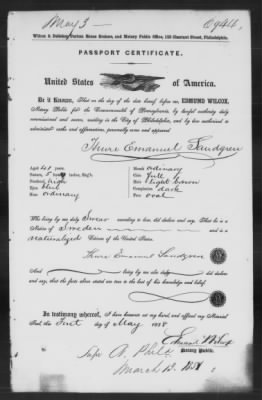 May 3 — 6944.
Wilcox & Deblieux, Patent House Brokers, and Notary Public Office, 125 Chestnut Street, Philadelphia.
PASSPORT CERTIFICATE.
United States of America.
Be it Known, That on the day of the date hereof, before me, EDMUND WILCOX,
Notary Public for the Commonwealth of Pennsylvania, by lawful authority duly
commissioned and sworn, residing in the City of Philadelphia, and by law authorized to
administer oaths and affirmations, personally came and appeared
Thure Emanuel Sandgren
Aged years. Mouth ordinary
Stature, 5 feet inches, Eng'h. Chin full
Forehead high Hair light brown
Eyes blue Complexion dark
Nose ordinary Face oval
Who being by me duly Swear according to law, did declare and say, That he is a
Native of Sweden and a
naturalized Citizen of the United States.
Thure Emanuel Sandgren
And being by me duly did declare
and say, that the facts above stated are true to the best of his knowledge and belief.
In testimony whereof, I have hereunto set my hand and affixed my Notarial
Seal, this First day of May 1858
Edmund Wilcox
Notary Public.
Phila
March 13. 1851